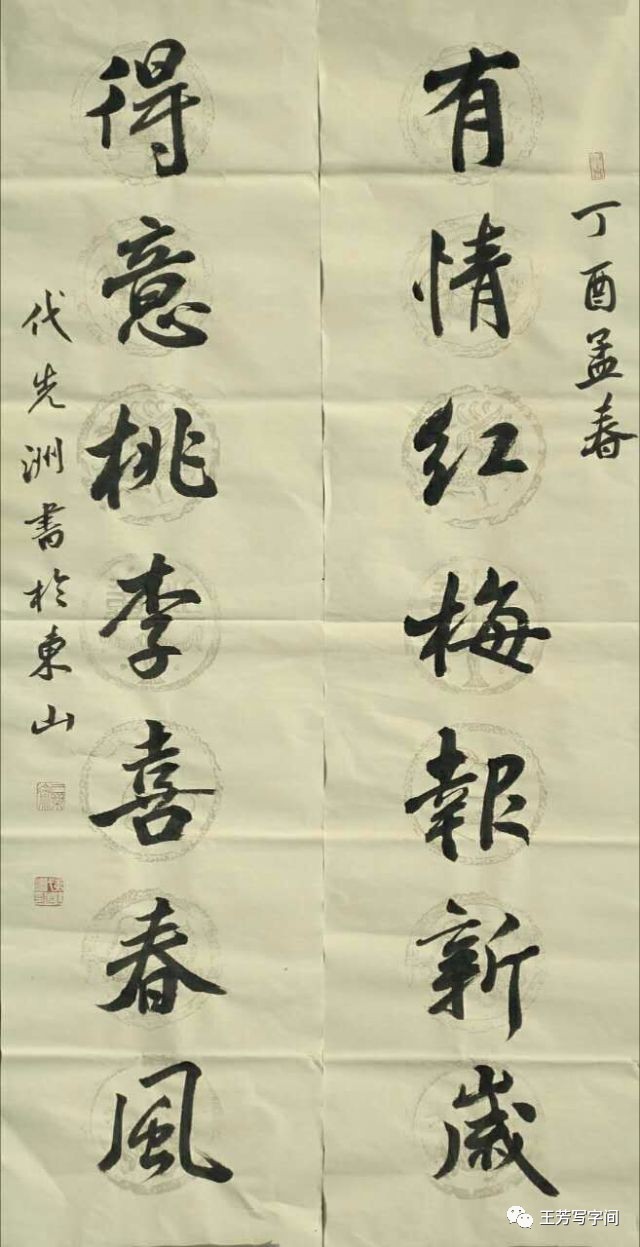 丁酉孟春
有情红梅報新歲
得意桃李喜春風
代先洲書於東山
王芳写字间